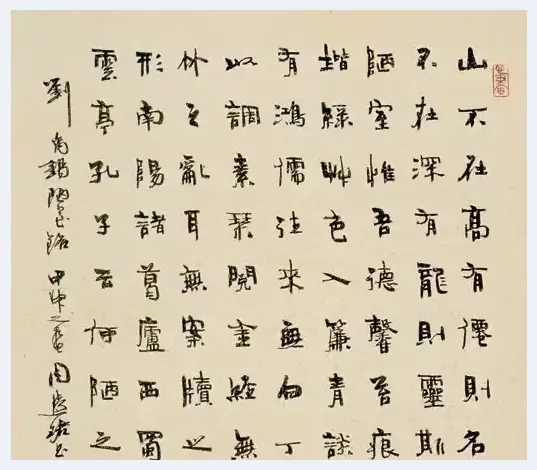 山不在高有僊則名
不在深有龍則靈斯
陋室惟吾德馨苔痕
堦綠艸色入簾青談
有鴻儒往來無白丁
以調素琴閱金經無
竹之亂耳無案牘之
形南陽諸葛廬西蜀
雲亭孔子云何陋之
劉禹錫陋室銘甲申之